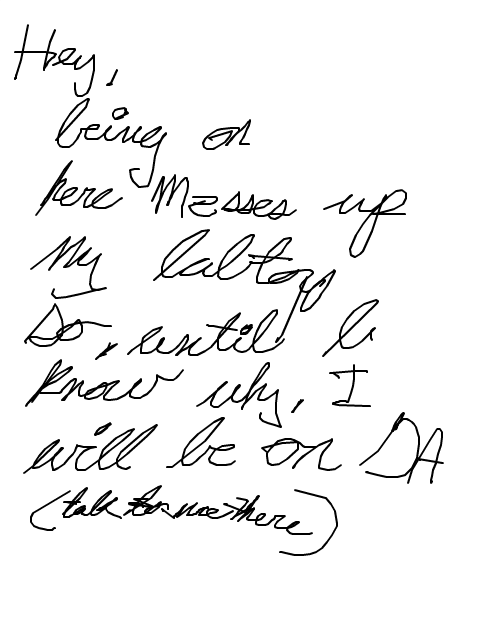 Hey,
being on
here messes up
my labtop
So, until I
know why, I
will be on DA
(talk to me there)